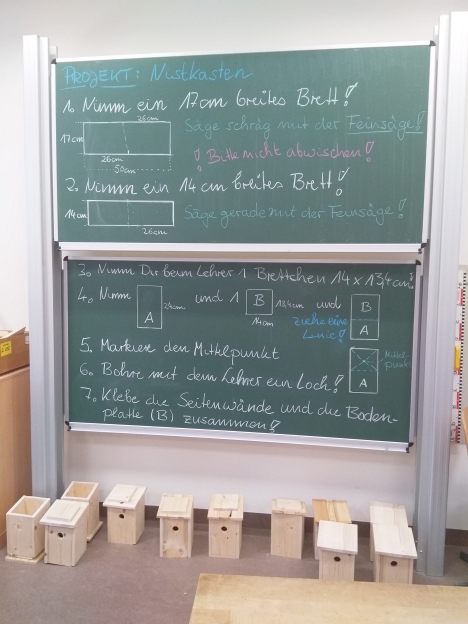 PROJEKT: Nistkasten
1. Nimm ein 17cm breites Brett!
26cm
17cm
Säge schräg mit der Feinsäge!
26cm
50cm
! Bitte nicht abwischen!
2. Nimm ein 14 cm breites Brett!
14cm
Säge gerade mit der Feinsäge!
26cm
3. Nimm Dir beim Lehrer 1 Brettchen 14 x 13,4 cm!
4. Nimm
A
24cm
und 1
B
13,4cm
14cm
und
B
A
ziehe eine
Linie!
5. Markiere den Mittelpunkt
Mittel-
punkt
A
6. Bohre mit dem Lehrer ein Loch!
7. Klebe die Seitenwände und die Boden-
platte (B) zusammen!